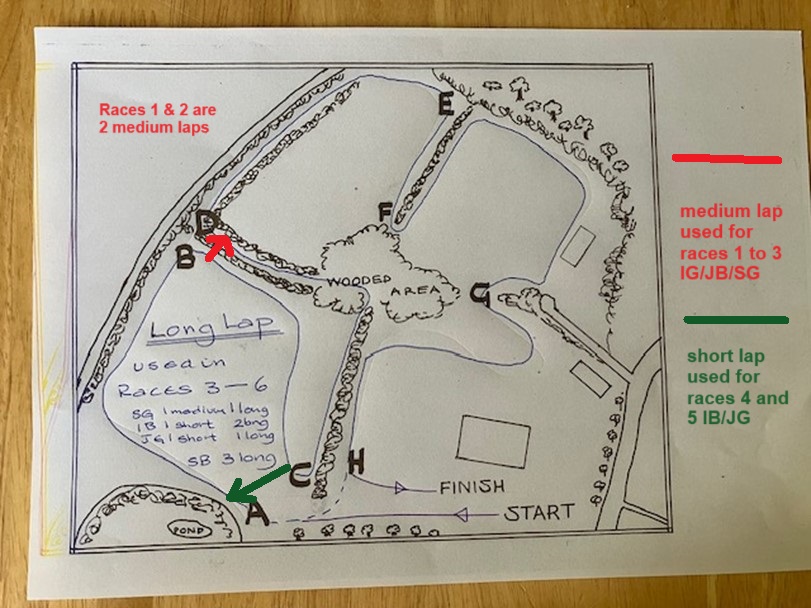 Races 1 & 2 are
2 medium laps
E
F
D
B
WOODED
AREA
G
Long Lap
used in
Races 3 - 6
SG 1 medium 1 long
IB 1 short 2 long
JG 1 short 1 long
SB 3 long
C
H
A
FINISH
START
POND
medium lap
used for
races 1 to 3
IG/JB/SG
short lap
used for
races 4 and
5 IB/JG